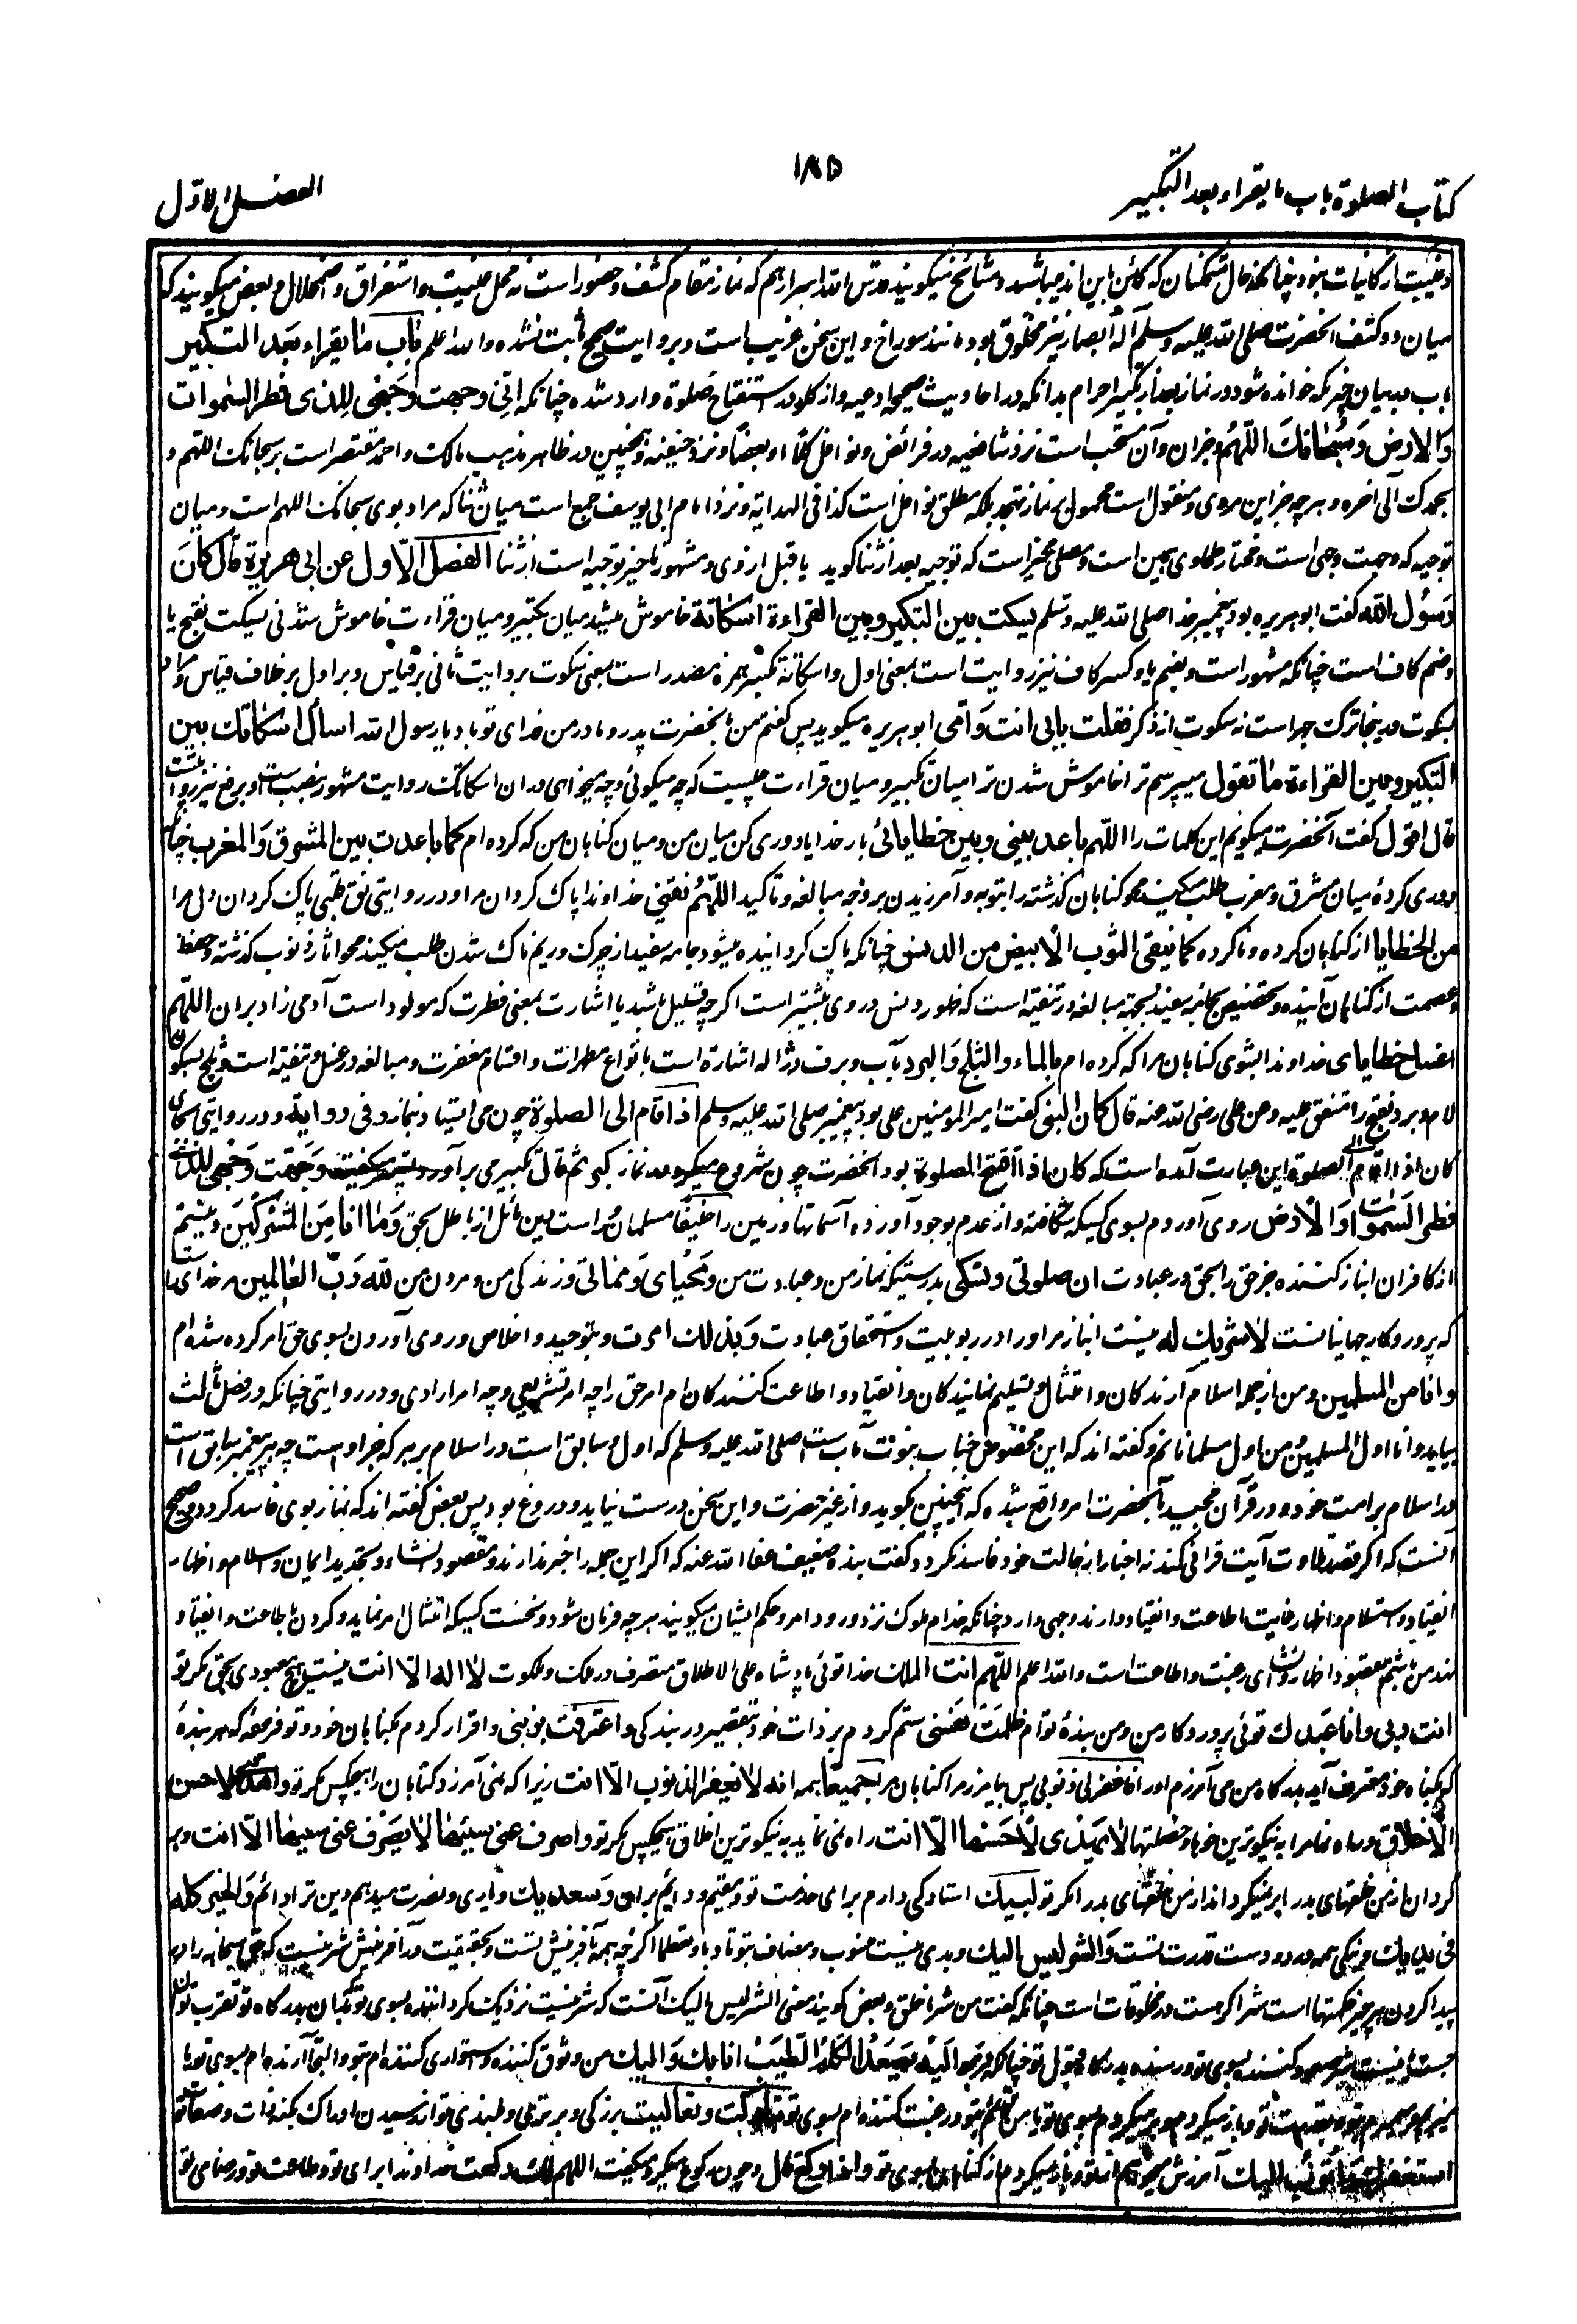 کتاب الصلوة باب ما یقراء بعد التکبیر
۱۸۵
الفصل الاول
وغیبت از کائنات بود چنانکه حال متمکنان که کائن باین اند میباشد و مشائخ میگویند قدس الله اسرارهم که نماز مقام کشف و حضور است نه محل غیبت و استغراق و اضمحلال و بعض میگویند که
میان دو کتف آنحضرت صلی الله علیه وسلم آلۀ ابصار نیز مخلوق بوده مانند سوراخ و این سخن غریب است و بروایت صحیح ثابت نشده والله اعلم باب ما یقراء بعد التکبیر
باب در بیان چیزیکه خوانده شود در نماز بعد از تکبیر احرام بدانکه در احادیث صحیحه ادعیه و اذکار در استفتاح صلوة وارد شده چنانکه انی وجهت وجهی للذی فطر السموات
والارض وسبحانک اللهم و جز آن و آن مستحب است نزد شافعیه در فرائض و نوافل کلاً او بعضاً و نزد حنیفه و همچنین در ظاهر مذهب مالک و احمد مقتصر است بر سبحانک اللهم و
بحمدک الی آخره و هر چه جز این مروی و منقول است محمول بر نماز تهجد بلکه مطلق نوافل است کذا فی الهدایه و نزد امام ابی یوسف جمع است میان ثنا که مراد بوی سبحانک اللهم است و میان
توجیه که وجهت وجهی است و مختار طحاوی همین است و مصلی مخیر است که توجیه بعد از ثنا گوید یا قبل از وی و مشهور تاخیر توجیه است از ثنا الفصل الاول عن ابی هریرة قال کان
رسول الله گفت ابو هریره بود پیغمبر خدا صلی الله علیه وسلم یسکت بین التکبیر وبین القراءة اسکاتة خاموش میشد میان تکبیر و میان قراءت خاموش شدنی یسکت بفتح یا
وضم کاف است چنانکه مشهور است و بضم یا و کسر کاف نیز روایت است بمعنی اول و اسکاتة بکسر همزه مصدر است بمعنی سکوت بروایت ثانی بر قیاس و بر اول بر خلاف قیاس و مراد
بسکوت درینجا ترک جهر است نه سکوت از ذکر فقلت بابی انت وامی ابو هریره میگوید پس گفتم من بآنحضرت پدر و مادر من فدای تو باد یا رسول الله اسألک اسکاتک بین
التکبیر وبین القراءة ما تقول میپرسم ترا خاموش شدن ترا میان تکبیر و میان قراءت چیست که چه میگوئی و چه میخواهی در ان اسکاتک روایت مشهور بنصب است و برفع نیز روایت است
قال اقول گفت آنحضرت میگویم این کلمات را اللهم باعد بینی وبین خطایای بار خدایا دوری کن میان من و میان گناهان من که کرده ام کما باعدت بین المشرق والمغرب چنانکه
دوری کردۀ میان مشرق و مغرب طلب میکند محو گناهان گذشته را بتوبه و آمرزیدن بر وجه مبالغه و تاکید اللهم نقنی خداوندا پاک گردان مرا و در روایتی نق قلبی پاک گردان دل مرا
من الخطایا از گناهان کرده و ناکرده کما ینقی الثوب الابیض من الدنس چنانکه پاک گردانیده میشود جامه سفید از چرک و ریم ناک شدن طلب میکند محو آثار ذنوب گذشته و حفظ
وعصمت از گناهان آینده و تخصیص بجامه سفید بجهة مبالغه در تنقیه است که ظهور دنس در وی بیشتر است اگرچه قلیل باشد یا اشارت بمعنی فطرت که مولود است آدمی زاد بران اللهم
اغسل خطایای خداوندا بشوی گناهان مرا که کرده ام بالماء والثلج والبرد بآب و برف و ژاله اشاره است بانواع مطهرات و اقسام مغفرت و مبالغه در غسل و تنقیه است و ثلج بسکون
لام و برد بفتح را متفق علیه وعن علی رضی الله عنه قال کان النبی گفت امیر المومنین علی بود پیغمبر صلی الله علیه وسلم اذا قام الی الصلوة چون می ایستاد بنماز وفی روایة و در روایتی بجای
کان اذا قام الی الصلوة این عبارت آمده است که کان اذا افتتح الصلوة بود آنحضرت چون شروع میکرد در نماز کبر ثم قال تکبیر می برآورد پستر میگفت وجهت وجهی للذی
فطر السموات والارض روی آوردم بسوی کسیکه شگافته و از عدم بوجود آورده آسمانها و زمین را حنیفاً مسلمان راست دین مائل از باطل بحق وما انا من المشرکین و نیستم
از کافران انباز کننده جز حق را بحق در عبادت ان صلوتی ونسکی بدرستیکه نماز من و عبادت من ومحیای ومماتی و زندگی من و مردن من لله رب العالمین مر خدای راست
که پروردگار جهانیانست لا شریک له نیست انباز مر او را در ربوبیت و استحقاق عبادت وبذلک امرت و بتوحید و اخلاص و روی آوردن بسوی حق امر کرده شده ام
وانا من المسلمین و من از جمله اسلام آرندگان و امتثال و تسلیم نمایندگان و انقیاد و اطاعت کنندگان ام امر حق را چه امر تشریعی و چه امر ارادی و در روایتی چنانکه در فصل ثالث
بیاید وانا اول المسلمین و من اول مسلمانانم و گفته اند که این مخصوص جناب نبوت مآب است صلی الله علیه وسلم که اول و سابق است در اسلام بر هر که جز اوست چه هر پیغمبر سابق است
در اسلام بر امت خود و در قرآن مجید بآنحضرت امر واقع شده که اینچنین بگوید و از غیر حضرت وی این سخن درست نیاید و دروغ بود پس بعض گفته اند که نماز بوی فاسد گردد و صحیح
آنست که اگر قصد تلاوت آیت قرانی کند نه اخبار از حالت خود فاسد نگردد گفت بنده ضعیف عفا الله عنه که اگر این جمله را خبر ندارند و مقصود انشاء و تجدید ایمان و اسلام و اظهار
انقیاد و استسلام و اظهار غایت اطاعت و انقیاد دارند وجهی دارد چنانکه خدام ملوک نزد ورود امر و حکم ایشان میگویند هر چه فرمان شود و نخست کسیکه امتثال امر نماید و گردن باطاعت و انقیاد
نهد من باشم مقصود اظهار رضا و رغبت و اطاعت است والله اعلم اللهم انت الملک خدا توئی پادشاه علی الاطلاق متصرف در ملک و ملکوت لا اله الا انت نیست هیچ معبودی بحق مگر تو
انت ربی وانا عبدک توئی پروردگار من و من بندۀ توام ظلمت نفسی ستم کردم بر ذات خود بتقصیر در بندگی واعترفت بذنبی و اقرار کردم بگناهان خود و تو فرمودۀ که هر بندۀ
که بگناه خود معترف آید بدرگاه من می آمرزم او را فاغفر لی ذنوبی پس بیامرز مرا گناهان مرا جمیعاً همه انه لا یغفر الذنوب الا انت زیرا که نمی آمرزد گناهان را هیچکس مگر تو واهدنی لاحسن
الاخلاق و راه نما مرا به نیکوترین خوها و خصلتها لا یهدی لاحسنها الا انت راه نمی نماید به نیکوترین اخلاق هیچکس مگر تو واصرف عنی سیئها لا یصرف عنی سیئها الا انت و بر
گردان از من خلقهای بد را بر نمیگرداند از من خلقهای بد را مگر تو لبیک استادگی دارم برای خدمت تو و مقیم و دائم بران وسعدیک و یاری و نصرت میدهم دین ترا دائم والخیر کله
فی یدیک و نیکی همه در دو دست قدرت تست والشر لیس الیک و بدی نیست منسوب و مضاف بتو تادباً و تعظیماً اگرچه همه بآفرینش تست و بحقیقت در آفرینش شر نیست که حق سبحانه را در
پیدا کردن هر چیز حکمتها است شر اگر هست در مخلوقات است چنانکه گفت من شر ما خلق و بعض گویند معنی الشر لیس الیک آنست که شر نیست نزدیک گرداننده بسوی تو بدان بدرگاه تو تقرب نتوان
جست یا نیست شر صعود کننده بسوی تو و رسنده بدرگاه قبول تو چنانکه فرمود الیه یصعد الکلم الطیب انا بک والیک من وثوق کننده و استواری کننده ام بتو و التجا آرنده ام بسوی تو یا
بتو و بقدرت تو و باز میگردم بسوی تو یا من قائم بتو و رغبت کننده ام بسوی تو تبارکت وتعالیت بزرگی و برتری و بلندی تو از رسیدن ادراک بکنه ذات و صفات تو
استغفرک واتوب الیک آمرزش میخواهم از تو و باز میگردم از گناهان بسوی تو واذا رکع قال و چون رکوع میکرد میگفت اللهم لک رکعت خداوندا برای تو و طاعت تو و رضای تو